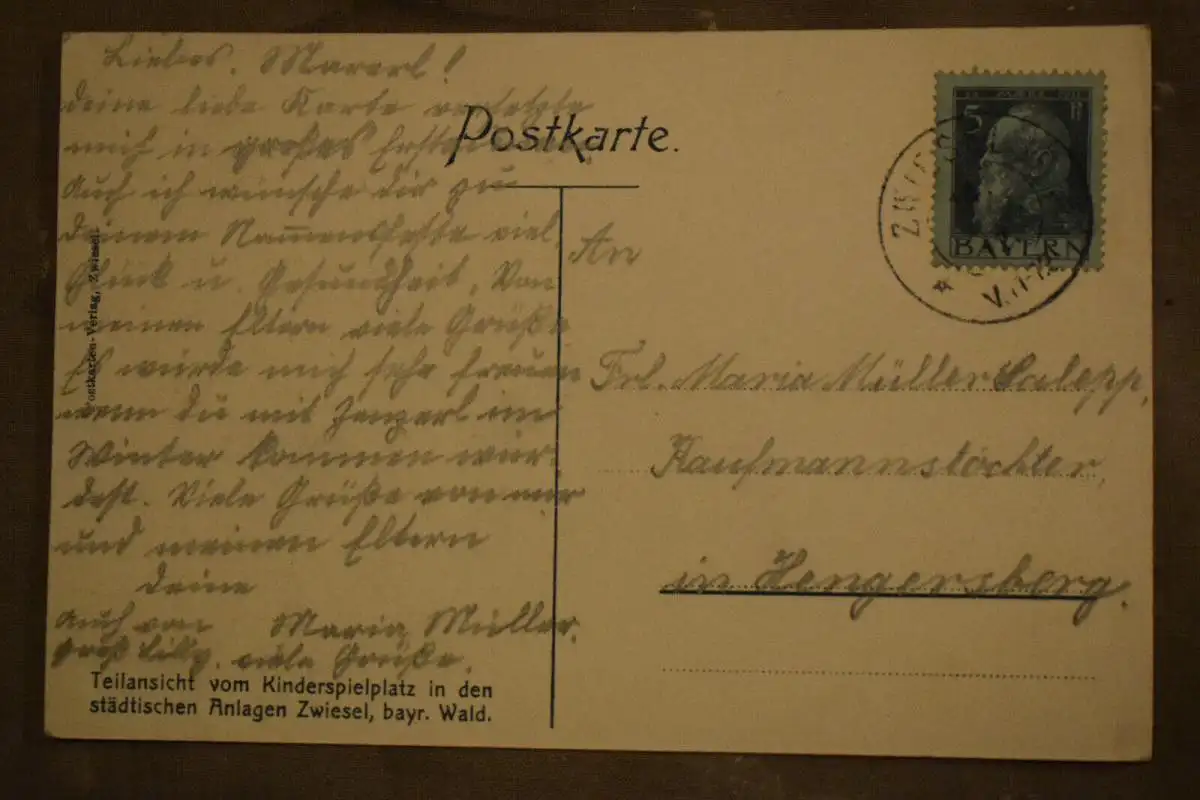 Liebes. Mararl!
deine liebe Karte versetzte
mich in großes
Auch ich wünsche dir zu
deinem Namensfeste viel
Glück u. Gesundheit. Von
meinen Eltern viele Grüße
Es würde mich sehr freuen
wenn du mit Zenzerl im
Winter kommen wür-
dest. Viele Grüße von mir
und meinen Eltern
deine
Maria Müller.
auch von
viele Grüße.
Teilansicht vom Kinderspielplatz in den
städtischen Anlagen Zwiesel, bayr. Wald.
Postkarten-Verlag, Zwiesel.
Postkarte.
5
BAYERN
An
Frl. Maria Müller
Kaufmannstöchter,
in Hengersberg.